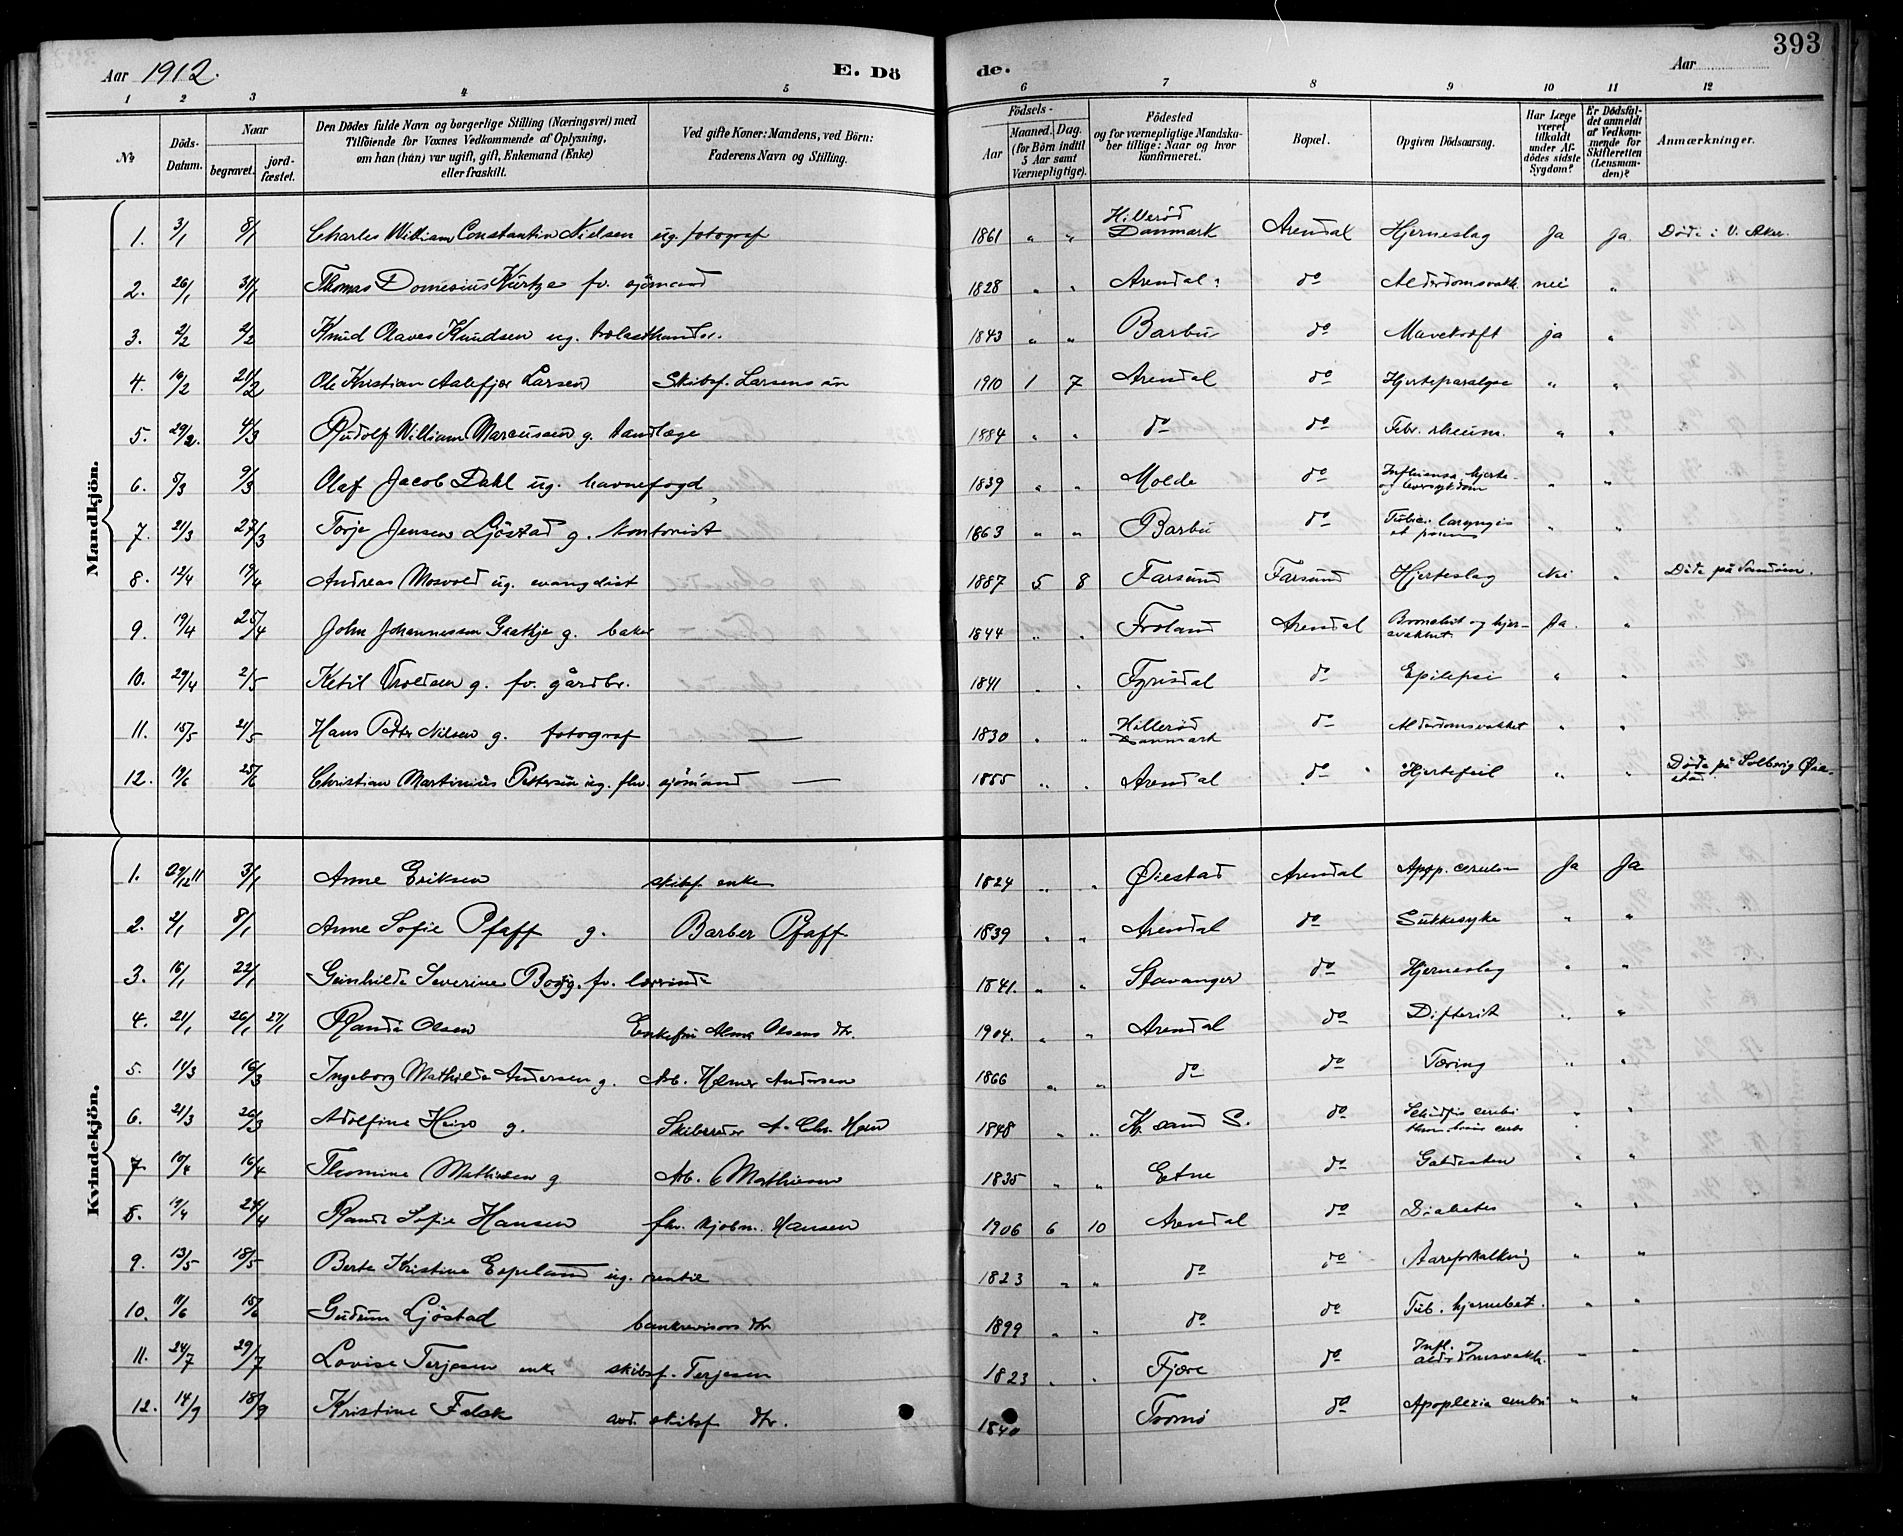 393
Aar 1912. E. Dö de. Aar
1 2 3 4 5 6 7 8 9 10 11 12
No
Döds-Datum.
Naar
begravet.
jord-fæstet.
Den Dödes fulde Navn og borgerlige Stilling (Næringsvei) med
Tilföiende for Voxnes Vedkommende af Oplysning,
om han (hun) var ugift, gift, Enkemand (Enke)
eller fraskilt.
Ved gifte Koner: Mandens, ved Börn:
Faderens Navn og Stilling.
Födsels-
Aar
Maaned. Dag.
(for Börn indtil
5 Aar samt
Værnepligtige).
Födested
og for værnepligtige Mandska-
ber tillige: Naar og hvor
konfirmeret.
Bopæl.
Opgiven Dödsaarsag.
Har Læge
været
tilkaldt
under Af-
dödes sidste
Sygdom?
Er Dödsfal-
det anmeldt
af Vedkom-
mende for
Skifteretten
(Lensman-
den)?
Anmærkninger.
Mandkjön.
1. 3/1 8/1 Charles William Constantin Nielsen ug. fotograf 1861 " " Hillerød Danmark Arendal Hjerneslag Ja Ja. Døde i V. Aker.
2. 26/1 31/1 Thomas Kurtze fv. sjömand 1828 " " Arendal do Alderdomsvakh. nei "
3. 2/2 Knud Olaves Knudsen ug. 1843 " " Barbu do Mavekræft ja "
4. 16/2 21/2 Ole Kristian Aalefjær Larsen Skibsf. Larsens sn 1910 1 7 Arendal do Hjerteparalyse " "
5. 29/2. 4/3 Rudolf William Marcussen g. tandlæge 1884 " " do do Febr. rheum. " "
6. 5/3 9/3 Olaf Jacob Dahl ug. havnefogd 1839 " " Molde do Influensa, hjerte- og leversykdom " "
7. 21/3 27/3 Torje Jensen Ljöstad g. kontorist 1863 " " Barbu do laryngis et " "
8. 12/4 19/4 Andreas Mosvold ug. evangelist 1887 5 8 Farsund Farsund Hjerteslag Nei " Døde på
9. 19/4 25/4 John Johannessen g. baker 1844 " " Froland Arendal og Ja. "
10. 29/4 2/5 Ketil g. fv. gårdbr. 1841 " " Fyrisdal do Epilepsi " "
11. 15/5 21/5 Hans Petter Nilsen g. fotograf — 1830 " " Hillerød Danmark do Alderdomsvakhet " "
12. 19/6 25/6 Christian Martinius Pettersen ug. fhv. sjömand — 1855 " " Arendal do Hjertefeil " " Døde på Solborg Øie-stad.
Kvindekjön.
1. 29/12 11 3/1 Anne Eriksen skibsf. enke 1824 " " Øiestad Arendal Ja Ja
2. 2/1 8/1 Anne Sofie Pfaff g. Barber Pfaff 1839 " " Arendal do Sukkesyke " "
3. 16/1 22/1 Gunhilde Severine fv. lærerinde 1841. " " Stavanger do Hjerneslag " "
4. 21/1 26/1 27/1 Randi Olsen Enkefru Olsens dtr. 1904. " " Arendal do Difterit " "
5. 11/3 16/3 Ingeborg Mathilde Andersen g. Arb. Andersen 1866 " " do do Tæring " "
6. 21/3 26/3 Adolfine g. Skibsreder A. Chr. 1848 " " Kr. sand S. do " "
7. 10/4 16/4 Thomine Mathisen g Arb. Mathiesen 1835 " " Etne do Galdesten " "
8. 19/4 24/4 Randi Sofie Hansen fhv. kjöbm. Hansen 1906 6 10 Arendal do Diabetes " "
9. 13/5 18/5 Berte Kristine Espeland ug. 1823 " " do do Aareforkalkning " "
10. 11/6 15/6 Gudrun Ljöstad bankrevisors dtr 1899 " " do do Tub. hjernebet. " "
11. 24/7 29/7 Lovise Terjesen enke skibsf. Terjesen 1823 " " Fjære do Infl. alderdomsvakh. " "
12. 14/9 18/9 Kristine Falck avd. skibsf dtr. 1840 Tromø do Apoplexia cerebri " "